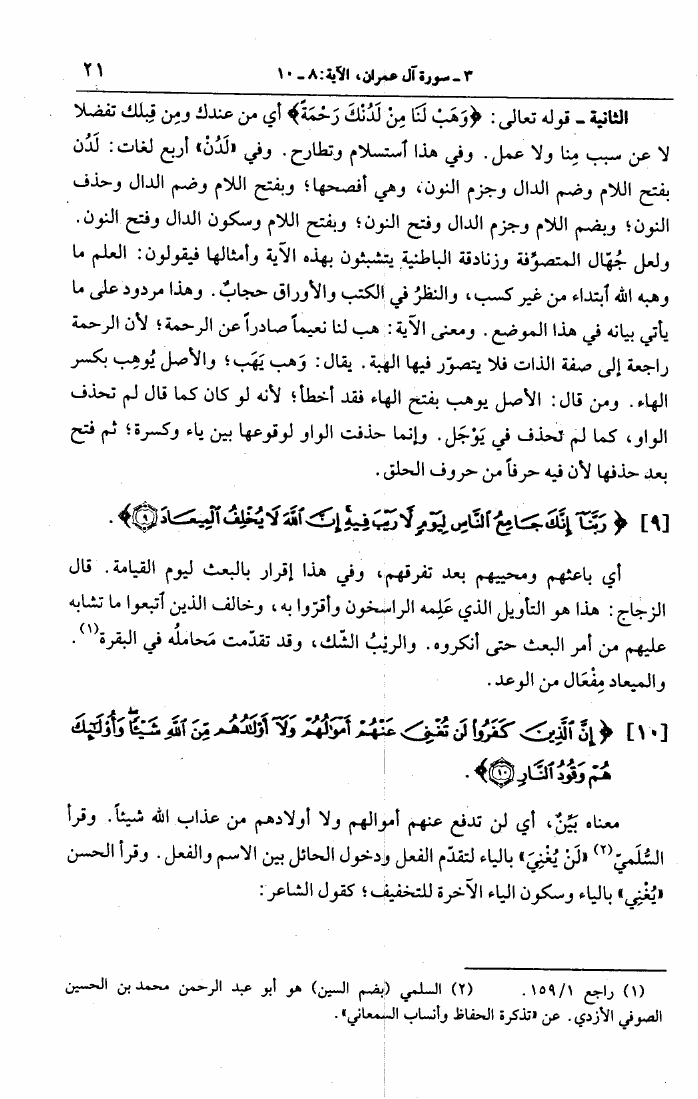 ٣ ـ سورة آل عمران، الآية: ٨ ـ ١٠ ٢١
الثانية ـ قوله تعالى: ﴿وَهَبْ لَنَا مِنْ لَدُنْكَ رَحْمَةً﴾ أي من عندك ومِن قِبلك تفضلا
لا عن سبب مِنا ولا عمل. وفي هذا ٱستسلام وتطارح. وفي «لَدُنْ» أربع لغات: لَدُن
بفتح اللام وضم الدال وجزم النون، وهي أفصحها؛ وبفتح اللام وضم الدال وحذف
النون؛ وبضم اللام وجزم الدال وفتح النون؛ وبفتح اللام وسكون الدال وفتح النون.
ولعل جُهّال المتصوِّفة وزنادقة الباطنية يتشبثون بهذه الآية وأمثالها فيقولون: العلم ما
وهبه الله ٱبتداء من غير كسب، والنظرُ في الكتب والأوراق حجابٌ. وهذا مردود على ما
يأتي بيانه في هذا الموضع. ومعنى الآية: هب لنا نعيماً صادراً عن الرحمة؛ لأن الرحمة
راجعة إلى صفة الذات فلا يتصوّر فيها الهبة. يقال: وَهب يَهَب؛ والأصل يُوهِب بكسر
الهاء. ومن قال: الأصل يوهب بفتح الهاء فقد أخطأ؛ لأنه لو كان كما قال لم تحذف
الواو، كما لم تحذف في يَوْجَل. وإنما حذفت الواو لوقوعها بين ياء وكسرة؛ ثم فتح
بعد حذفها لأن فيه حرفاً من حروف الحلق.
[٩] ﴿ رَبَّنَآ إِنَّكَ جَامِعُ ٱلنَّاسِ لِيَوْمٍ لَّا رَيْبَ فِيهِۚ إِنَّ ٱللَّهَ لَا يُخْلِفُ ٱلْمِيعَادَ ٩﴾.
أي باعثهم ومحييهم بعد تفرقهم، وفي هذا إقرار بالبعث ليوم القيامة. قال
الزجاج: هذا هو التأويل الذي عَلِمه الراسخون وأقرّوا به، وخالف الذين ٱتبعوا ما تشابه
عليهم من أمر البعث حتى أنكروه. والريْبُ الشّك، وقد تقدّمت مَحاملُه في البقرة(١).
والميعاد مِفْعَال من الوعد.
[١٠] ﴿ إِنَّ ٱلَّذِينَ كَفَرُوا لَن تُغْنِىَ عَنْهُمْ أَمْوَٰلُهُمْ وَلَآ أَوْلَٰدُهُم مِّنَ ٱللَّهِ شَيْـًٔا ۖ وَأُو۟لَٰٓئِكَ
هُمْ وَقُودُ ٱلنَّارِ ١٠﴾.
معناه بَيِّنٌ، أي لن تدفع عنهم أموالهم ولا أولادهم من عذاب الله شيئاً. وقرأ
السُّلَميّ(٢) «لَنْ يُغْنِيَ» بالياء لتقدّم الفعل ودخول الحائل بين الاسم والفعل. وقرأ الحسن
«يُغْنِي» بالياء وسكون الياء الآخرة للتخفيف؛ كقول الشاعر:
(١) راجع ١/ ١٥٩. (٢) السلمي (بضم السين) هو أبو عبد الرحمن محمد بن الحسين
الصوفي الأزدي. عن «تذكرة الحفاظ وأنساب السمعاني».